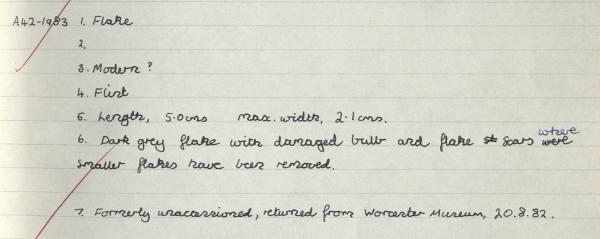 A42-1983 1. Flake
2.
3. Modern ?
4. Flint
5. Length, 5.0cms max. width, 2.1cms.
6. Dark grey flake with damaged bulb and flake st scars were where
smaller flakes have been removed.
7. Formerly unaccessioned, returned from Worcester Museum, 20.8.82.